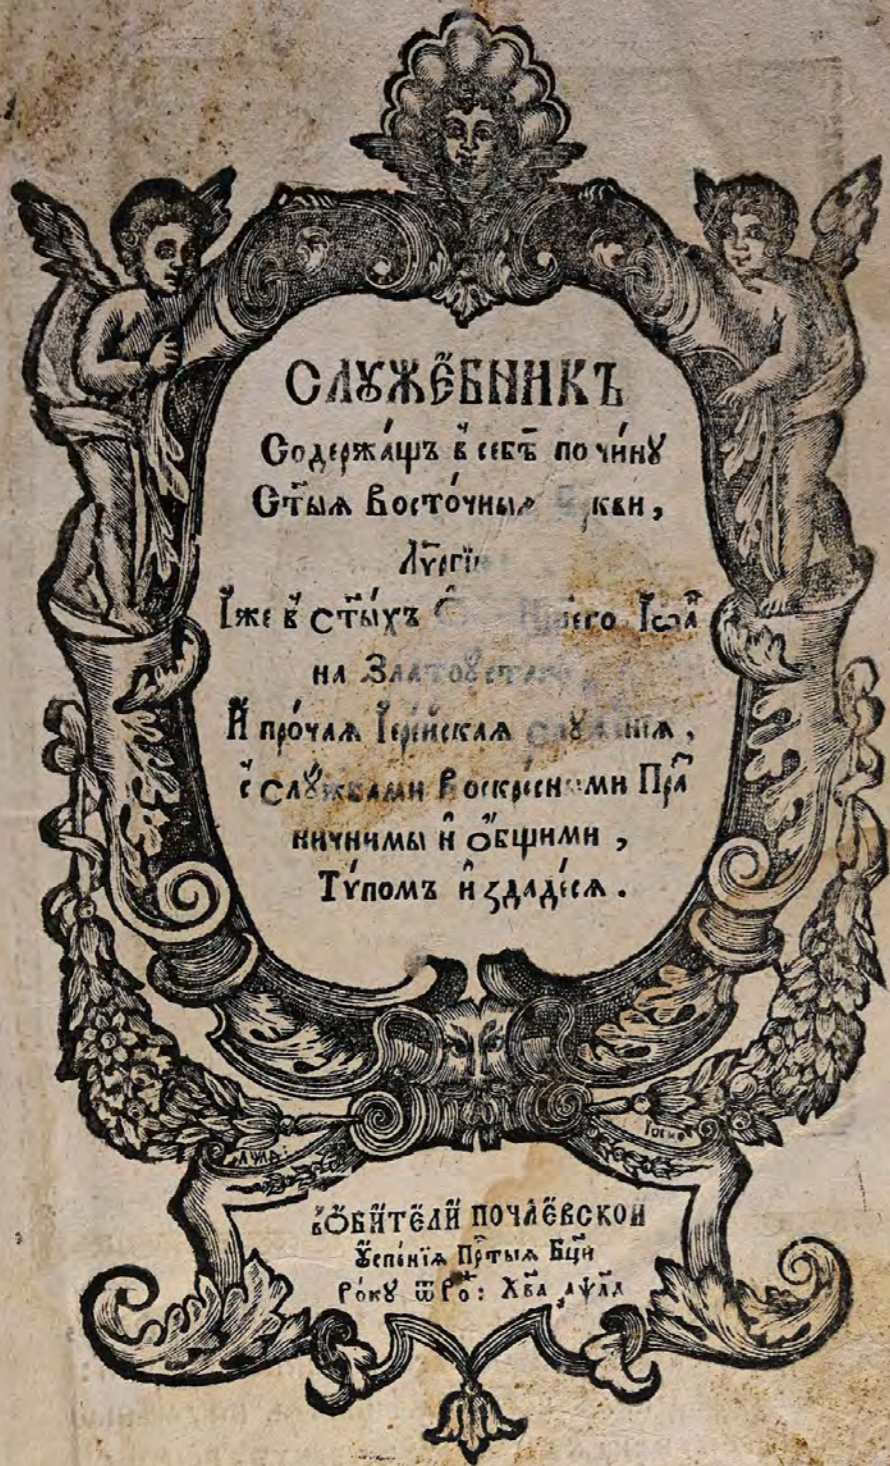 СЛꙊЖЕ́БНИКЪ
Содержа́щъ в̾ себѣ̀ по чи́нꙋ
Ст҃ы́ѧ Восто́чныѧ
Лѷргі
І҆́же в̾ ст҃ы́хъ Іѡа҃
на Златоꙋст
И҆ про́чаѧ І҆ере́йскаѧ
с̾ слꙋ́жбами Воскре́сными Пра҃
ничнимы и҆ ѻ҆́бщими ,
Тѵ́помъ и҆здаде́сѧ .
҂АѰЛД: Іосиѳъ
в̾ Ѻ҆БИ́ТЕЛИ ПОЧАЕ́ВСКОЙ
Ꙋ҆спе́нїѧ Пр҃тыѧ Бц҃и
Ро́кꙋ ѿ Ро: Хв҃а ҂аѱлд